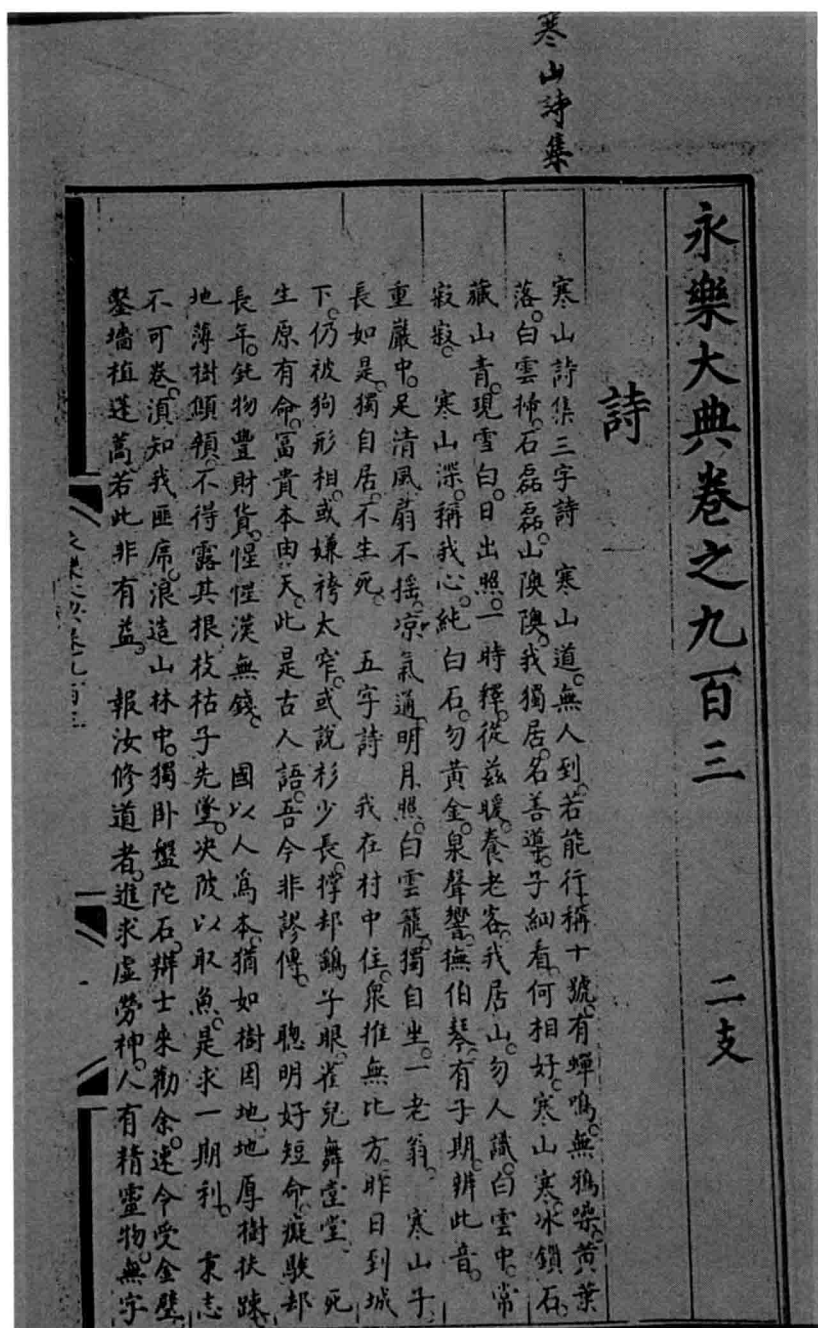 寒山詩集
永樂大典卷之九百三　二支
詩
寒山詩集三字詩　寒山道。無人到。若能行。稱十號。有蟬鳴。無鴉噪。黃葉
落。白雲掃。石磊磊。山隩隩。我獨居。名善導。子細看。何相好。寒山寒。冰鎖石。
藏山青。現雪白。日出照。一時釋。從茲暖。養老客。我居山。勿人識。白雲中。常
寂寂。　寒山深。稱我心。純白石。勿黃金。泉聲響。撫伯琴。有子期。辨此音。
重巖中。足清風。扇不搖。凉氣通。明月照。白雲籠。獨自坐。一老翁。　寒山子。
長如是。獨自居。不生死。　五字詩　我在村中住。衆推無比方。昨日到城
下。仍被狗形相。或嫌袴太窄。或說衫少長。撑却鷂子眼。雀兒舞堂堂。　死
生原有命。富貴本由天。此是古人語。吾今非謬傳。　聰明好短命。癡騃却
長年。鈍物豐財貨。惺惺漢無錢。　國以人爲本。猶如樹因地。地厚樹扶踈。
地薄樹顦顇。不得露其根。枝枯子先墜。决陂以取魚。是求一期利。　東志
不可卷。湏知我匪席。浪造山林中。獨卧盤陀石。辨士來勸余。速令受金璧。
鑿墻植蓬蒿。若此非有益。　報汝修道者。進求虛勞神。人有精靈物。無字
永樂大典卷九百三